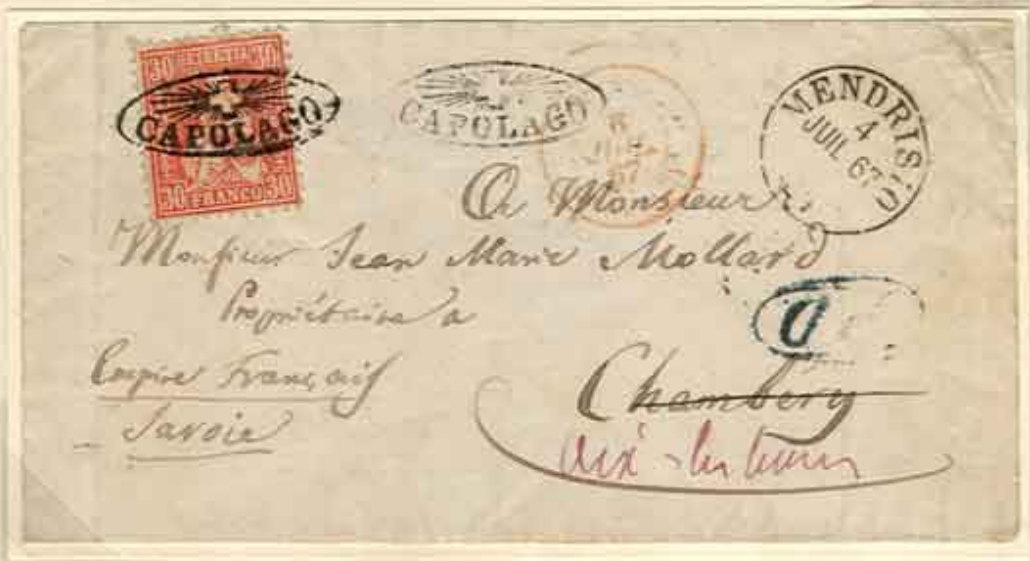 30 30
CAPOLAGO
30 FRANCO 30
CAPOLAGO
MENDRISIO
4
JUIL 67
A Monsieur
Monsieur Jean Marie Mollard
Propriétaire a
Empire Français
Savoie
Chambery
aix-les bains